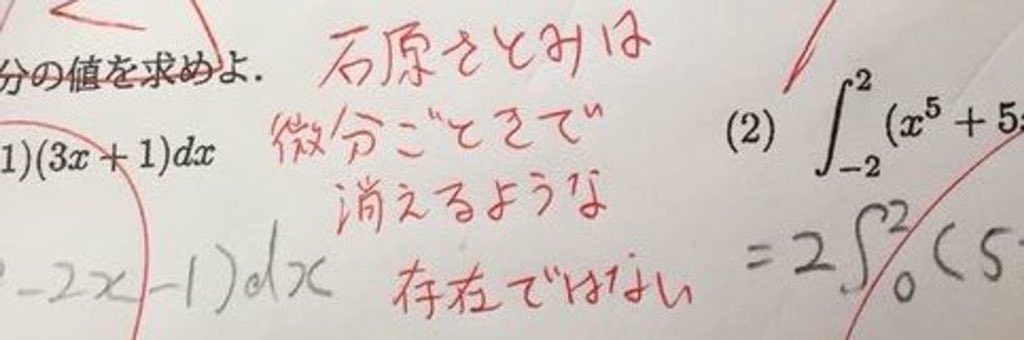 分の値を求めよ.
1)(3x + 1)dx
石原さとみは
微分ごときで
消えるような
存在ではない
-2x-1)dx
(2) ∫_{-2}^{2} (x^5 + 5
= 2∫_0^2 (5